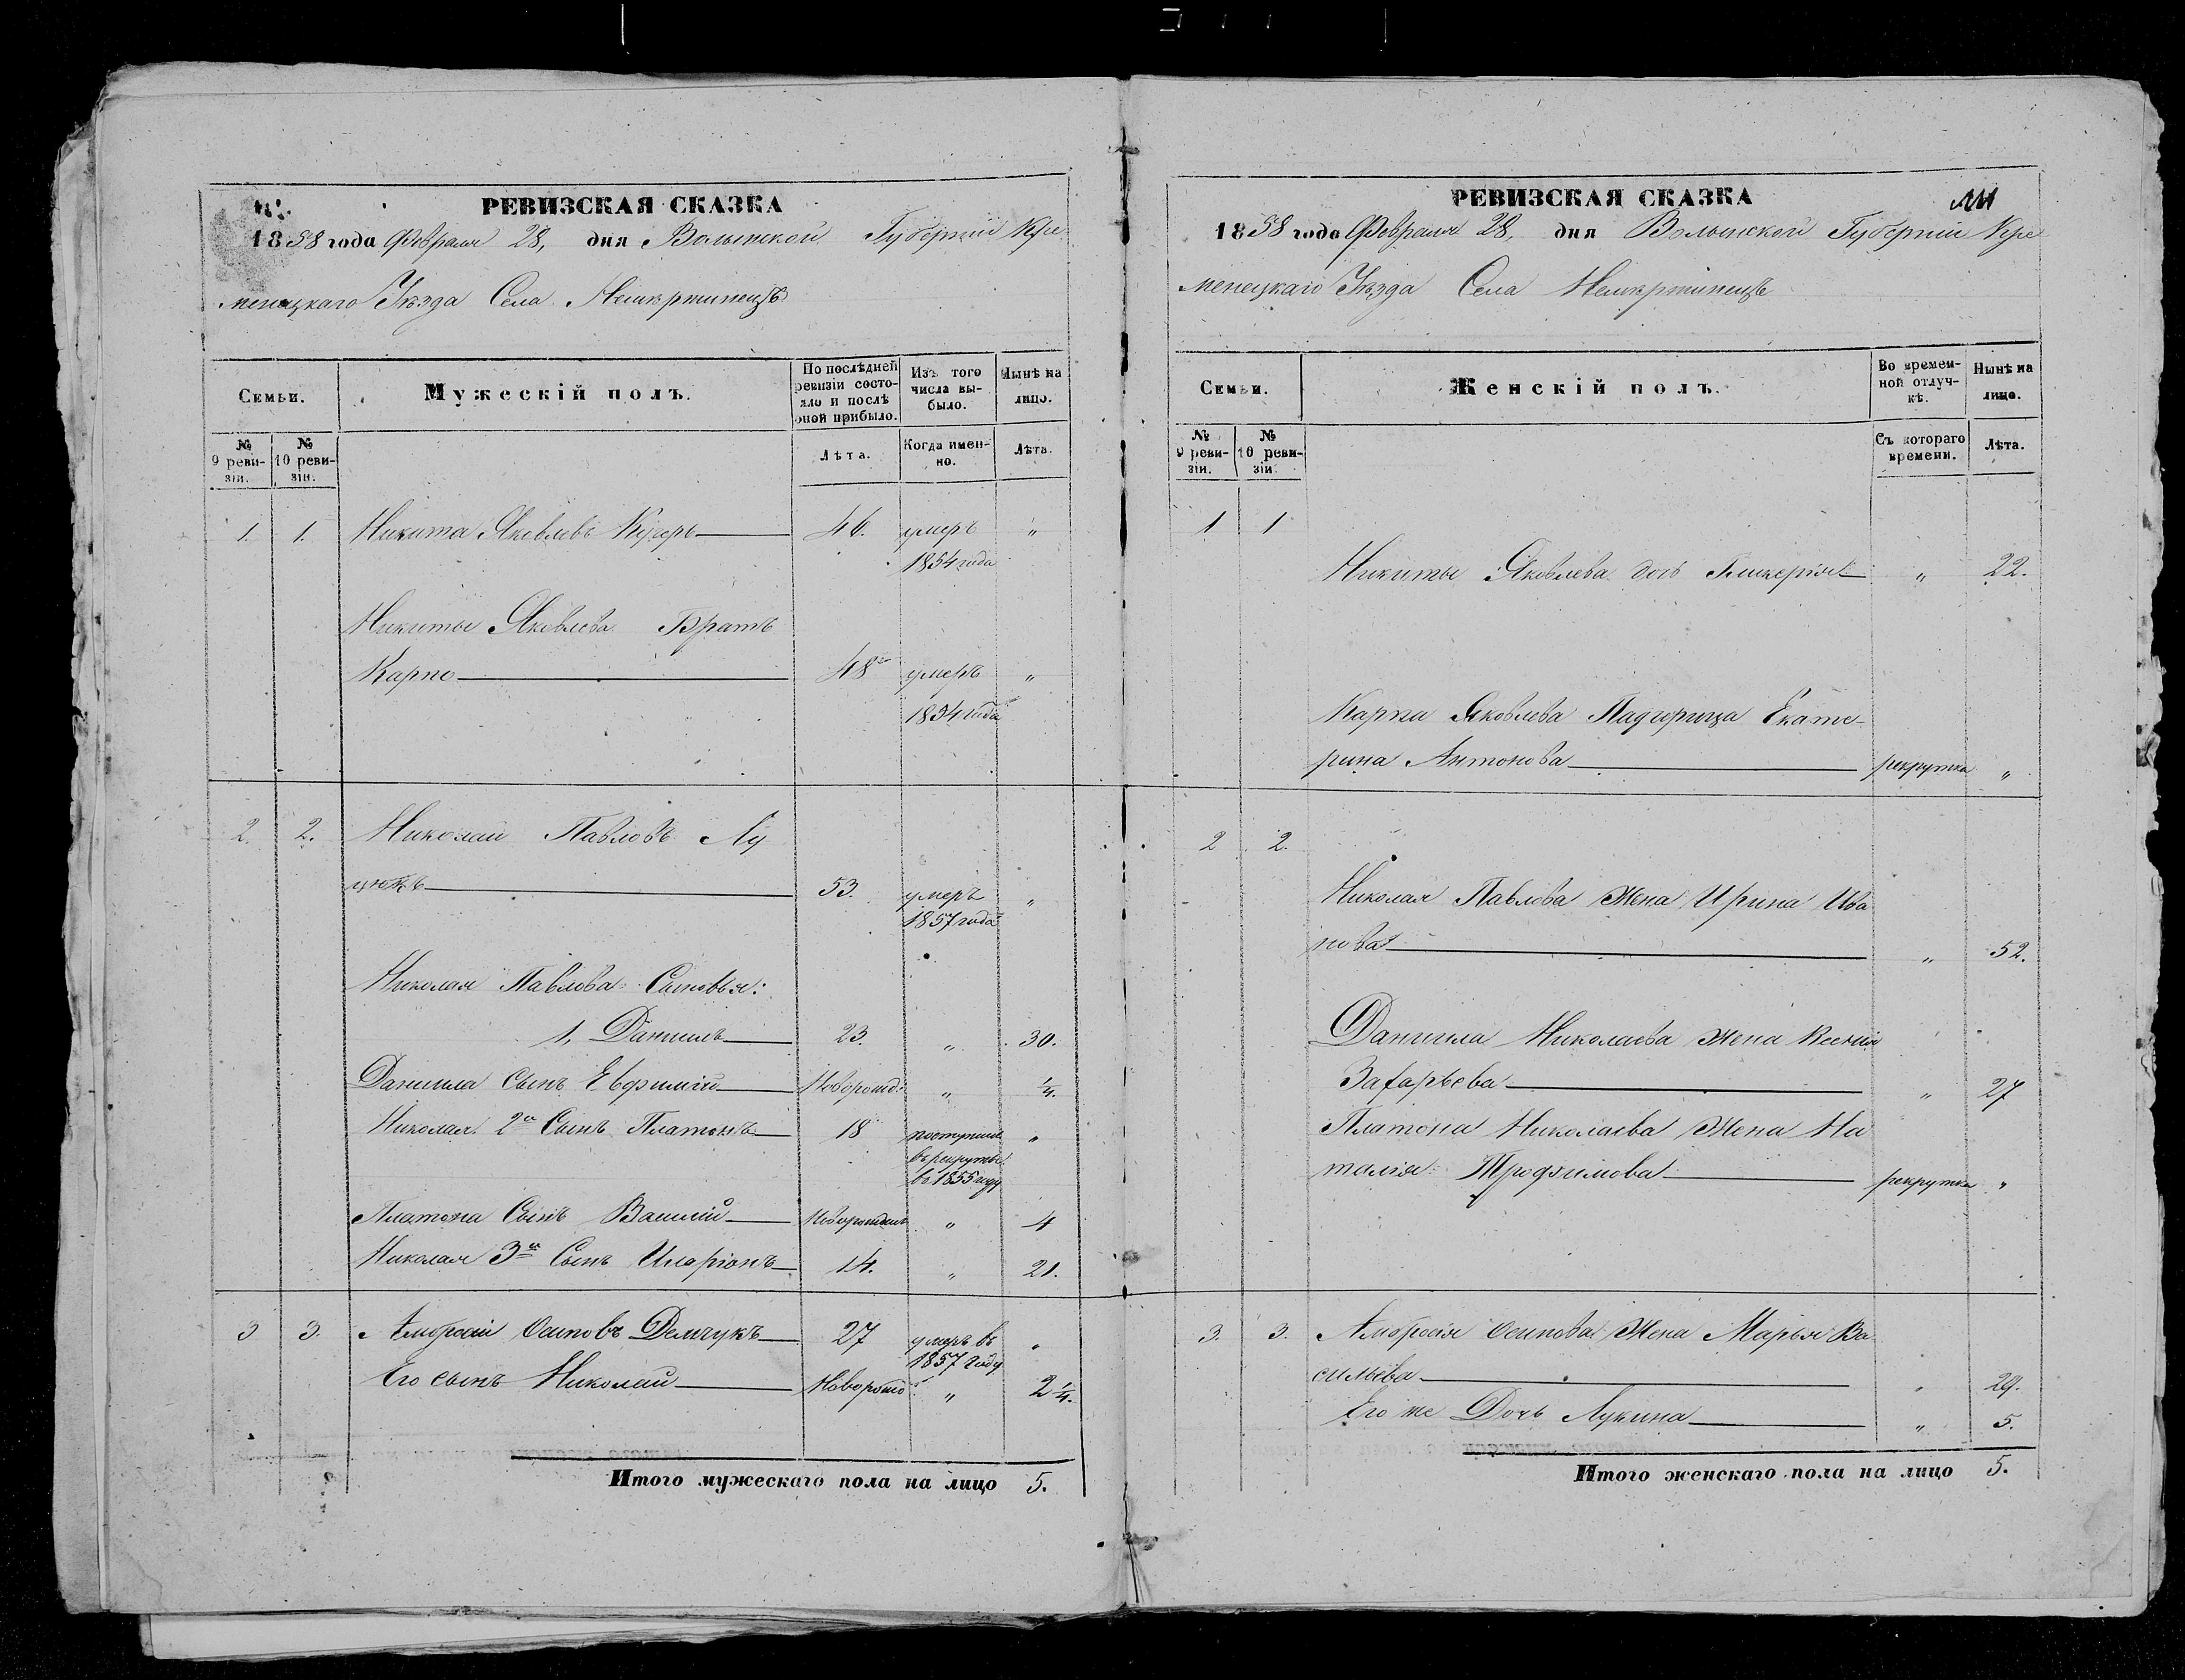 РЕВИЗСКАЯ СКАЗКА
1858 года Февраля 28, дня Волынской Губерніи Кре
менецкаго Уѣзда Села
Семьи.
Мужескій полъ.
По послѣдней ревизіи состо-
яло и послѣ оной прибыло.
Изъ того числа вы-
было.
Нынѣ на лицо.
№ 9 реви-
зіи.
№ 10 реви-
зіи.
Лѣта.
Когда имен-
но.
Лѣта.
1. 1. Никита Яковлевъ 46. умеръ "
1854 года
Никиты Яковлева Братъ
Карпо 48 умеръ "
1854 года
2. 2. Николай Павловъ Лу
цюкъ 53. умеръ "
1857 года
Николая Павлова Сыновья:
1, Даніилъ 23. " 30.
Даніила Сынъ Евфимій Новорожд: " 1/4.
Николая 2й Сынъ Платонъ 18 поступилъ "
въ рекруты
въ 1855 году
Платона Сынъ Василій " 4
Николая 3й Сынъ Иларіонъ 14. " 21.
3 3. Амвросій Осиповъ Демчукъ 27 умеръ въ "
1857 году
Его сынъ Николай Новорожд " 2 1/4.
Итого мужескаго пола на лицо 5.
РЕВИЗСКАЯ СКАЗКА
1858 года Февраля 28, дня Волынской Губерніи Кре
менецкаго Уѣзда Села
Семьи.
Женскій полъ.
Во времен-
ной отлуч-
кѣ.
Нынѣ на лицо.
№ 9 реви-
зіи.
№ 10 реви-
зіи.
Съ котораго времени.
Лѣта.
1 1
Никиты Яковлева дочь Гликерія " 22.
Карпа Яковлева Падчерица Екате-
рина Антонова рекрутка "
2 2.
Николая Павлова Жена Ирина Ива
нова " 52.
Даніила Николаева жена Ксенія
Захарьева " 27
Платона Николаева Жена На
талія Трофимова рекрутка "
3. 3. Амвросія Осипова Жена Марья Ва
сильева " 29.
Его же Дочь Лукина " 5.
Итого женскаго пола на лицо 5.